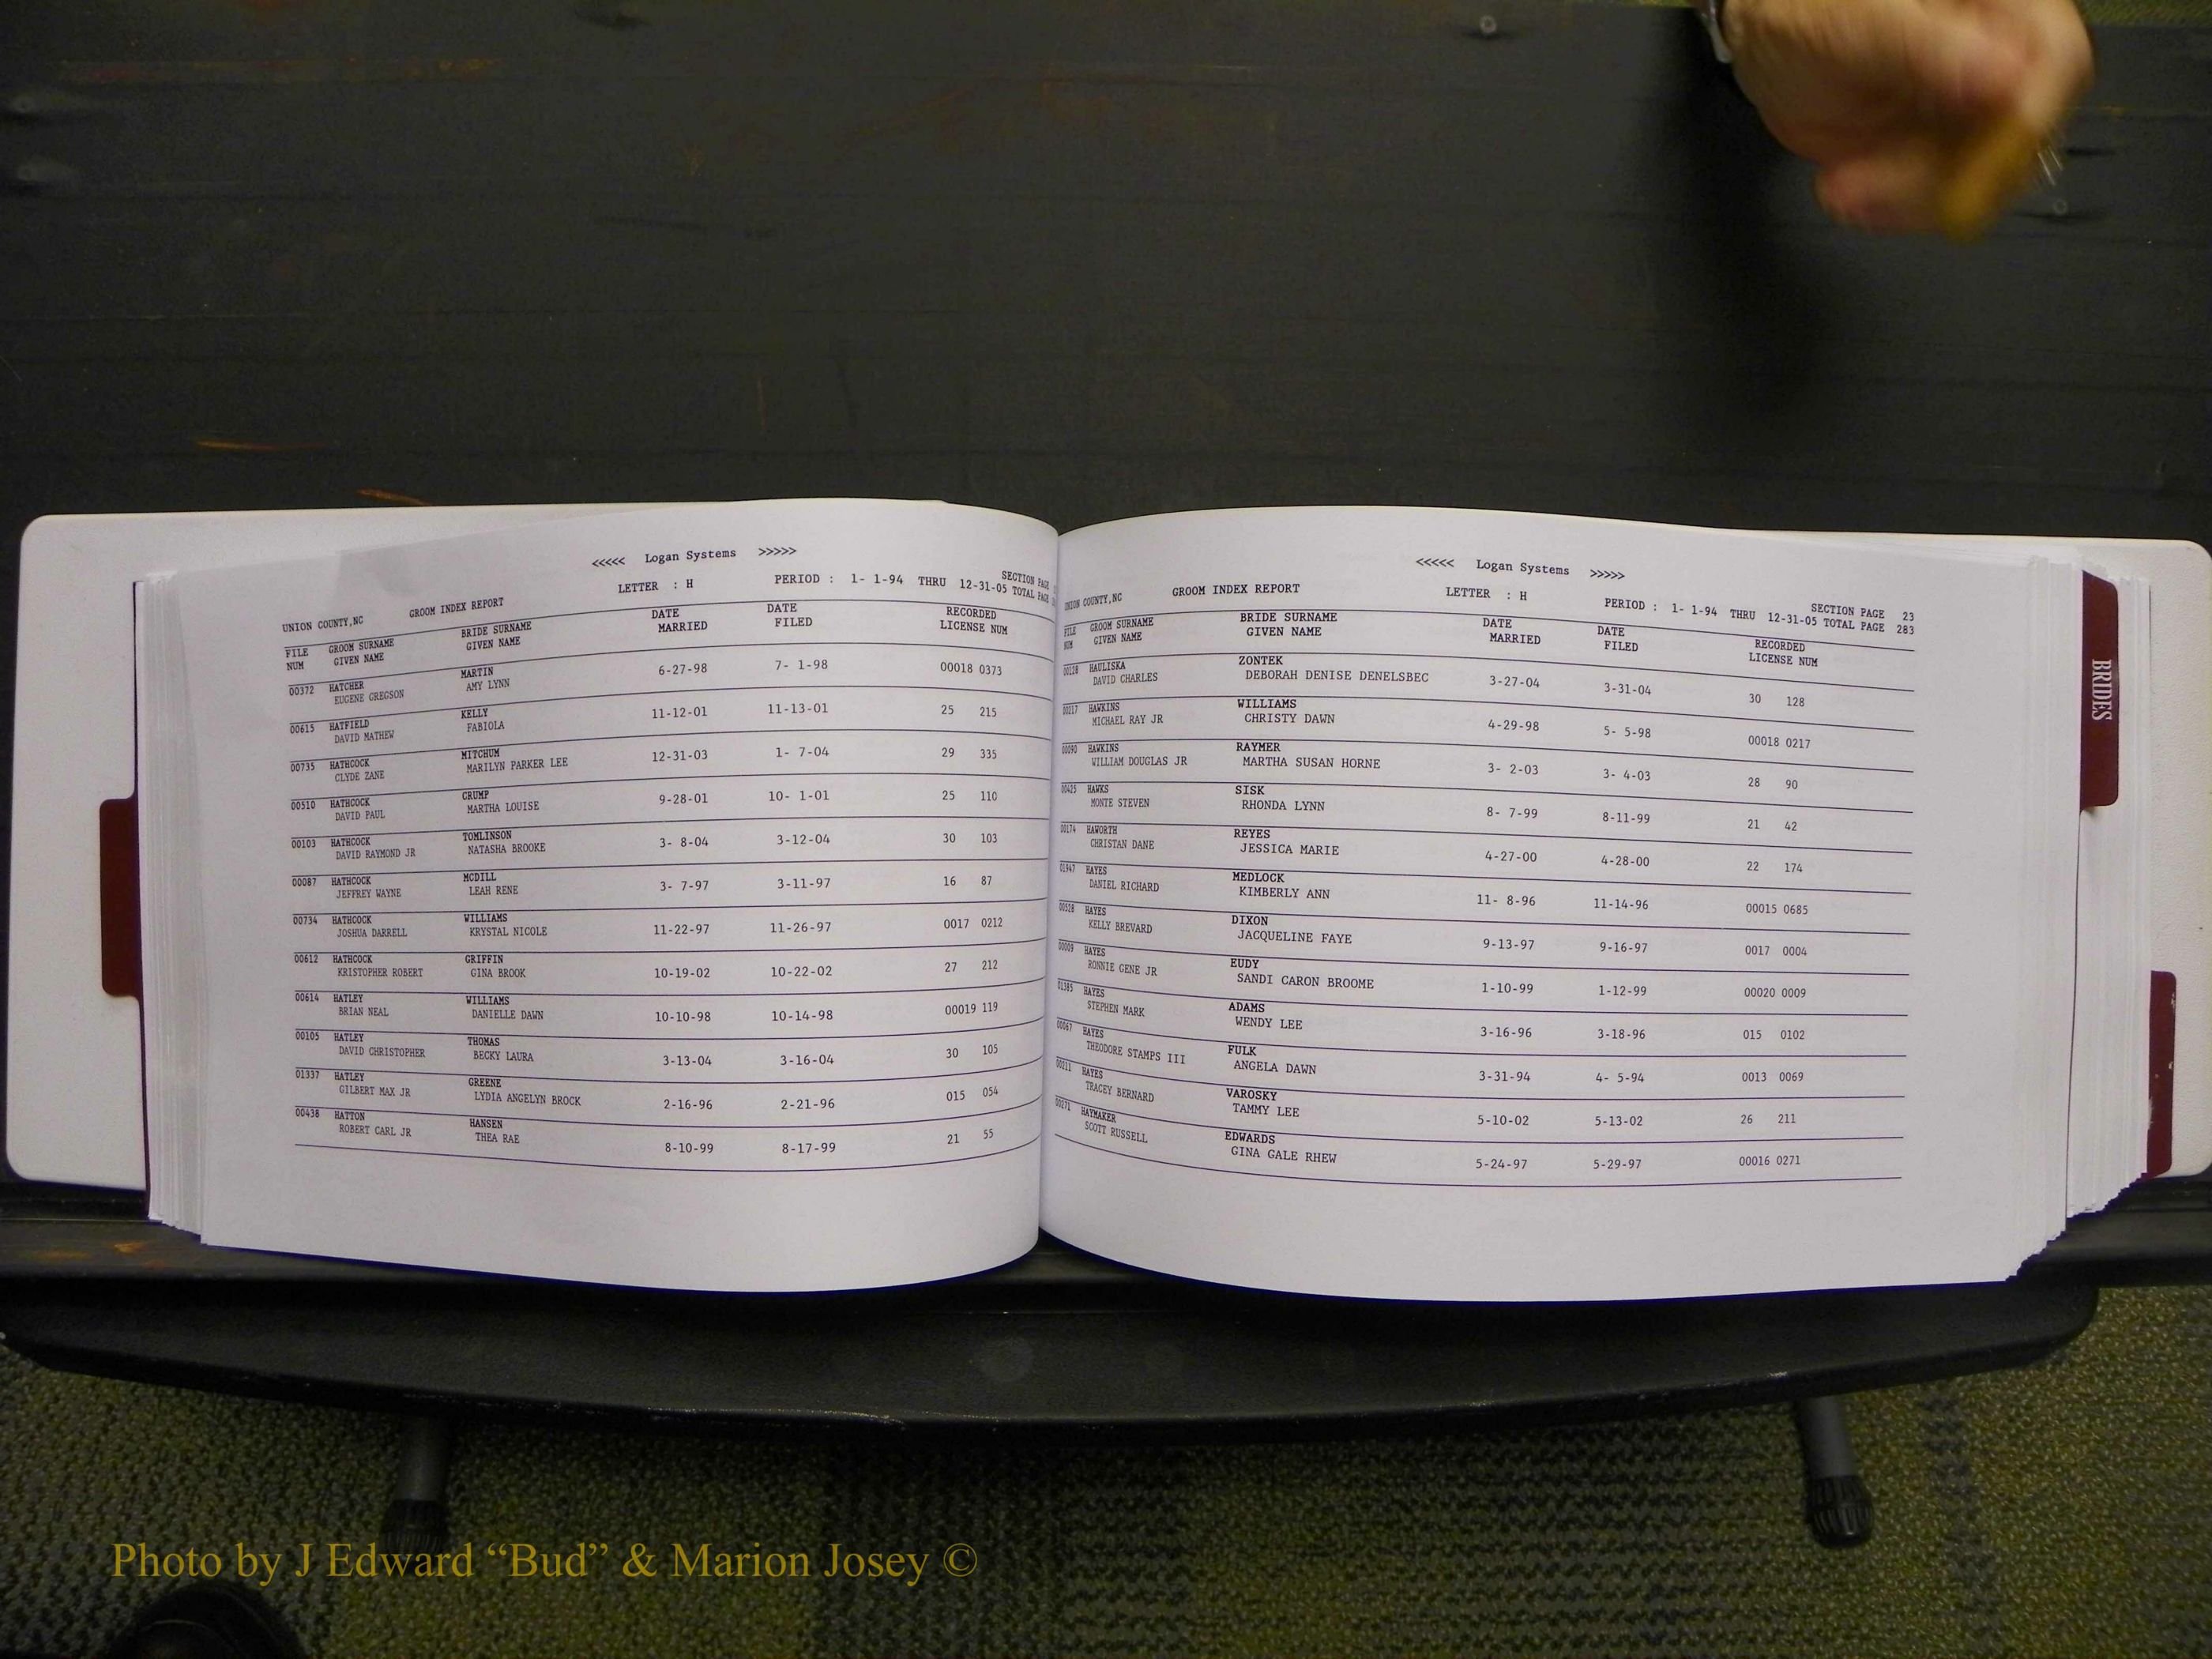 <<<<< Logan Systems >>>>>
UNION COUNTY,NC GROOM INDEX REPORT LETTER : H PERIOD : 1- 1-94 THRU 12-31-05 SECTION PAGE
TOTAL PAGE
FILE GROOM SURNAME BRIDE SURNAME DATE DATE RECORDED
NUM GIVEN NAME GIVEN NAME MARRIED FILED LICENSE NUM
00372 HATCHER MARTIN 6-27-98 7- 1-98 00018 0373
EUGENE GREGSON AMY LYNN
00615 HATFIELD KELLY 11-12-01 11-13-01 25 215
DAVID MATHEW FABIOLA
00735 HATHCOCK MITCHUM 12-31-03 1- 7-04 29 335
CLYDE ZANE MARILYN PARKER LEE
00510 HATHCOCK CRUMP 9-28-01 10- 1-01 25 110
DAVID PAUL MARTHA LOUISE
00103 HATHCOCK TOMLINSON 3- 8-04 3-12-04 30 103
DAVID RAYMOND JR NATASHA BROOKE
00087 HATHCOCK MCDILL 3- 7-97 3-11-97 16 87
JEFFREY WAYNE LEAH RENE
00734 HATHCOCK WILLIAMS 11-22-97 11-26-97 0017 0212
JOSHUA DARRELL KRYSTAL NICOLE
00612 HATHCOCK GRIFFIN 10-19-02 10-22-02 27 212
KRISTOPHER ROBERT GINA BROOK
00614 HATLEY WILLIAMS 10-10-98 10-14-98 00019 119
BRIAN NEAL DANIELLE DAWN
00105 HATLEY THOMAS 3-13-04 3-16-04 30 105
DAVID CHRISTOPHER BECKY LAURA
01337 HATLEY GREENE 2-16-96 2-21-96 015 054
GILBERT MAX JR LYDIA ANGELYN BROCK
00438 HATTON HANSEN 8-10-99 8-17-99 21 55
ROBERT CARL JR THEA RAE
<<<<< Logan Systems >>>>>
UNION COUNTY,NC GROOM INDEX REPORT LETTER : H PERIOD : 1- 1-94 THRU 12-31-05 SECTION PAGE 23
TOTAL PAGE 283
FILE GROOM SURNAME BRIDE SURNAME DATE DATE RECORDED
NUM GIVEN NAME GIVEN NAME MARRIED FILED LICENSE NUM
00128 HAULISKA ZONTEK 3-27-04 3-31-04 30 128
DAVID CHARLES DEBORAH DENISE DENELSBEC
00217 HAWKINS WILLIAMS 4-29-98 5- 5-98 00018 0217
MICHAEL RAY JR CHRISTY DAWN
00090 HAWKINS RAYMER 3- 2-03 3- 4-03 28 90
WILLIAM DOUGLAS JR MARTHA SUSAN HORNE
00425 HAWKS SISK 8- 7-99 8-11-99 21 42
MONTE STEVEN RHONDA LYNN
00174 HAWORTH REYES 4-27-00 4-28-00 22 174
CHRISTAN DANE JESSICA MARIE
01947 HAYES MEDLOCK 11- 8-96 11-14-96 00015 0685
DANIEL RICHARD KIMBERLY ANN
00528 HAYES DIXON 9-13-97 9-16-97 0017 0004
KELLY BREVARD JACQUELINE FAYE
00009 HAYES EUDY 1-10-99 1-12-99 00020 0009
RONNIE GENE JR SANDI CARON BROOME
01385 HAYES ADAMS 3-16-96 3-18-96 015 0102
STEPHEN MARK WENDY LEE
00067 HAYES FULK 3-31-94 4- 5-94 0013 0069
THEODORE STAMPS III ANGELA DAWN
00211 HAYES VAROSKY 5-10-02 5-13-02 26 211
TRACEY BERNARD TAMMY LEE
00271 HAYMAKER EDWARDS 5-24-97 5-29-97 00016 0271
SCOTT RUSSELL GINA GALE RHEW
BRIDES
Photo by J Edward “Bud” & Marion Josey ©